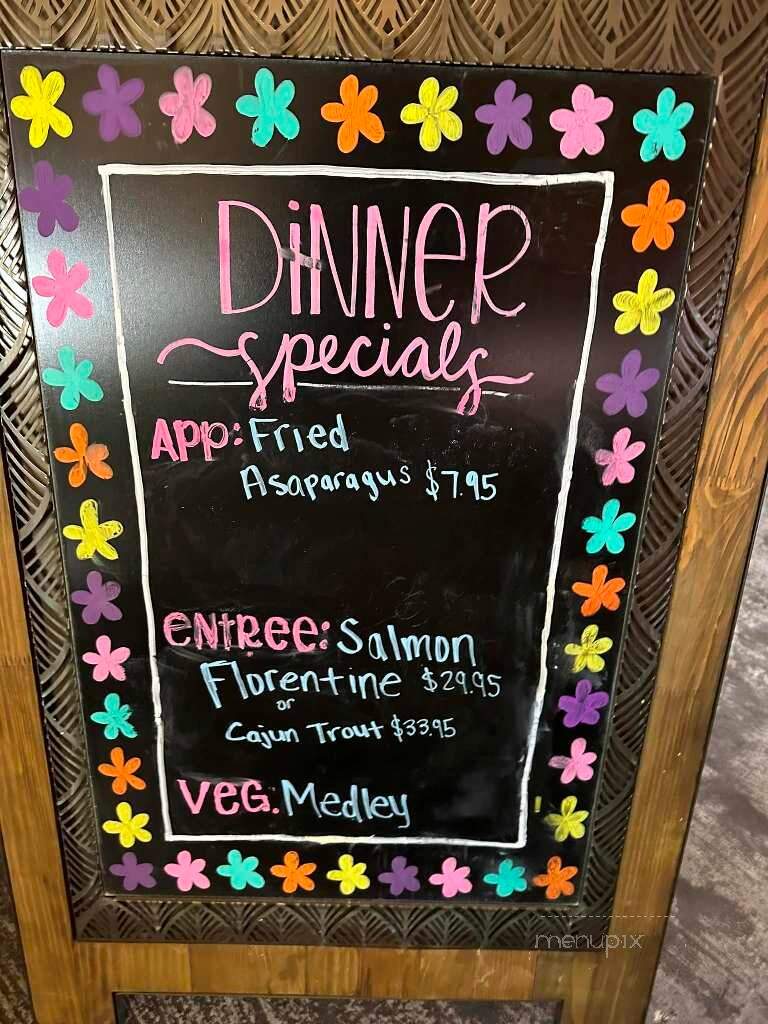 DiNNeR
specials
App: Fried
Asaparagus $7.95
eNtRee: Salmon
Florentine $29.95
or
Cajun Trout $33.95
VeG. Medley
menupix